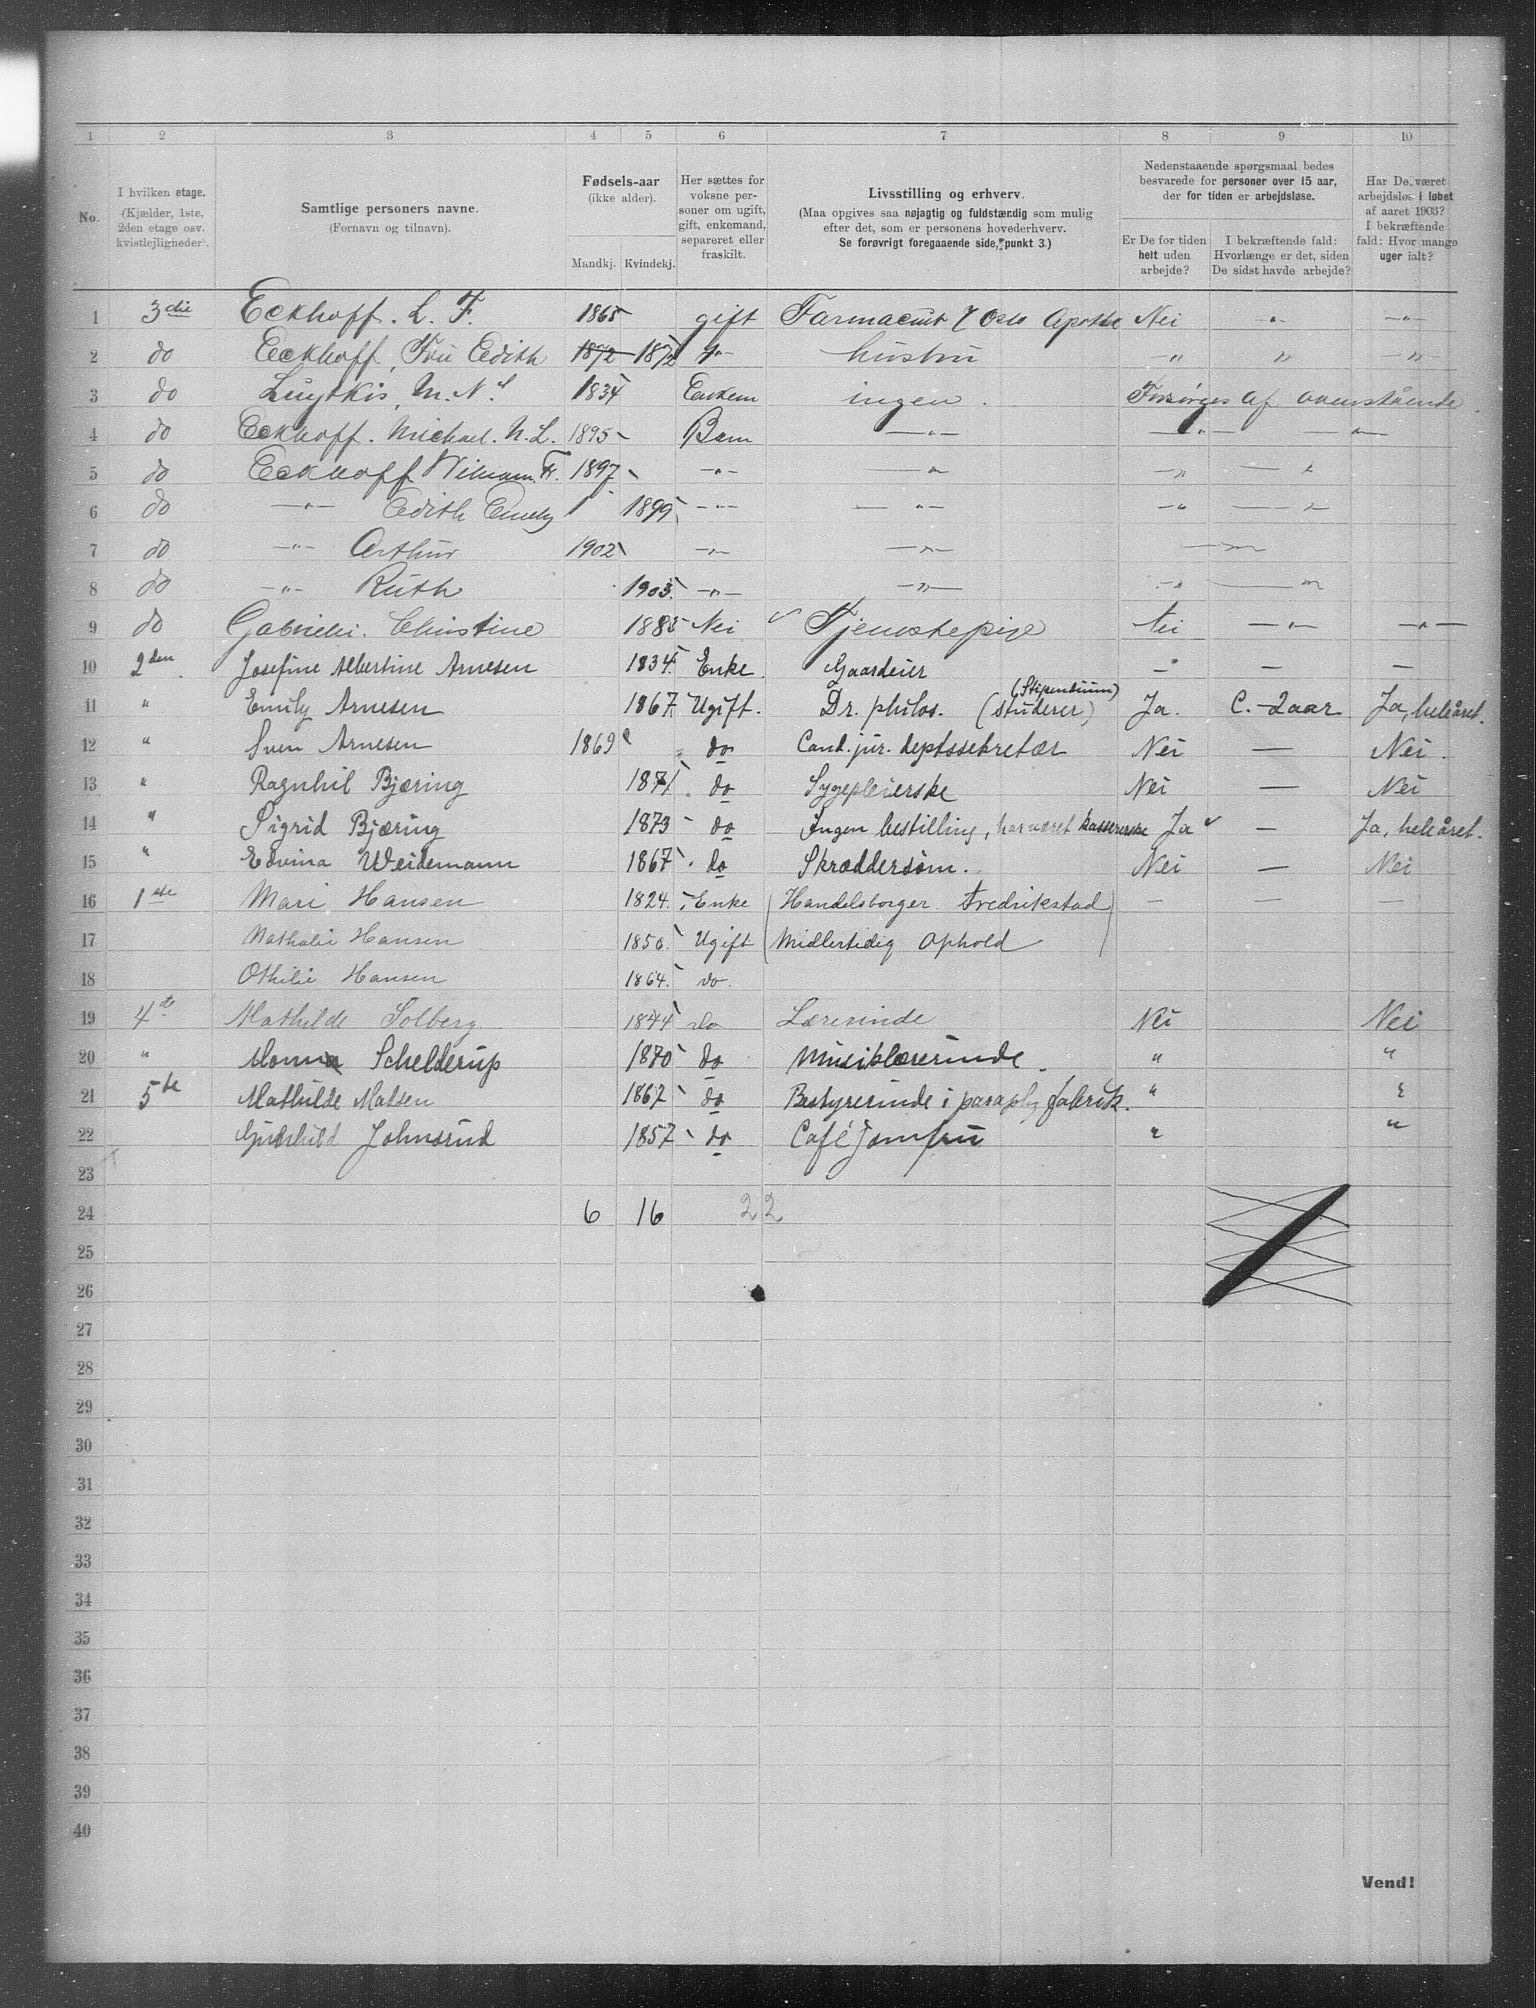 1 2 3 4 5 6 7 8 9 10
No.
I hvilken etage.
(Kjælder, 1ste, 2den etage osv. kvistlejligheder).
Samtlige personers navne.
(Fornavn og tilnavn).
Fødsels-aar
(ikke alder).
Mandkj. Kvindekj.
Her sættes for voksne personer om ugift, gift, enkemand, separeret eller fraskilt.
Livsstilling og erhverv.
(Maa opgives saa nøjagtig og fuldstændig som mulig efter det, som er personens hovederhverv.
Se forøvrigt foregaaende side, punkt 3.)
Nedenstaaende spørgsmaal bedes besvarede for personer over 15 aar, der for tiden er arbejdsløse.
Er De for tiden helt uden arbejde?
I bekræftende fald: Hvorlænge er det, siden De sidst havde arbejde?
Har De været arbejdsløs i løbet af aaret 1903? I bekræftende fald: Hvor mange uger ialt?
1 3die Eckhoff. L. F. 1865 gift Farmaceut / Oslo Apothek Nei — " — — " —
2 do Eckhoff, Fru Edith 1872 1872 — " — hustru — " " — " —
3 do M. N. 1834 Enkem ingen. Forsørges af ovenstående
4 do Eckhoff. Michael. N. L. 1895 Barn — " — — " — — " —
5 do Eckhoff William Fr. 1897 — " — — " — " — "
6 do — " — Edith Emely 1899 — " — — " — — " — "
7 do — " — Arthur 1902 — " — — " — — " —
8 do — " — Ruth 1903 — " — — " — — " — "
9 do Christine 1885 Nei Tjenestepige Nei — " — — " —
10 2den Josefine Albertine Arnesen 1834 Enke. Gaardeier — — —
11 " Emily Arnesen 1867 Ugift. Dr. philos. (studerer) (Stipendium) Ja. C. 2 aar Ja, hele året.
12 " Sven Arnesen 1869 do Cand. jur. deptssekretær Nei — Nei.
13 " Ragnhil Bjæring 1871 do Sygepleierske Nei — Nei
14 " Sigrid Bjæring 1873 do Ingen bestilling, har været kassererske Ja — Ja, hele året.
15 " Edvina Weidemann 1867 do Skræddersøm. Nei — Nei
16 1ste Mari Hansen 1824 Enke (Handelsborger Fredrikstad) — — —
17 Nathalie Hansen 1850 Ugift (Midlertidig Ophold)
18 Othilie Hansen 1864 do.
19 4de Mathilde Solberg 1844 Do Lærerinde Nei Nei
20 " Schelderup 1870 do Musiklærerinde. " "
21 5te Mathilde Matsen 1867 do Bestyrerinde i paraply fabrik. " "
22 Johnsrud 1857 do Café Jomfru " "
23
24 6 16 22
25
26
27
28
29
30
31
32
33
34
35
36
37
38
39
40
Vend!